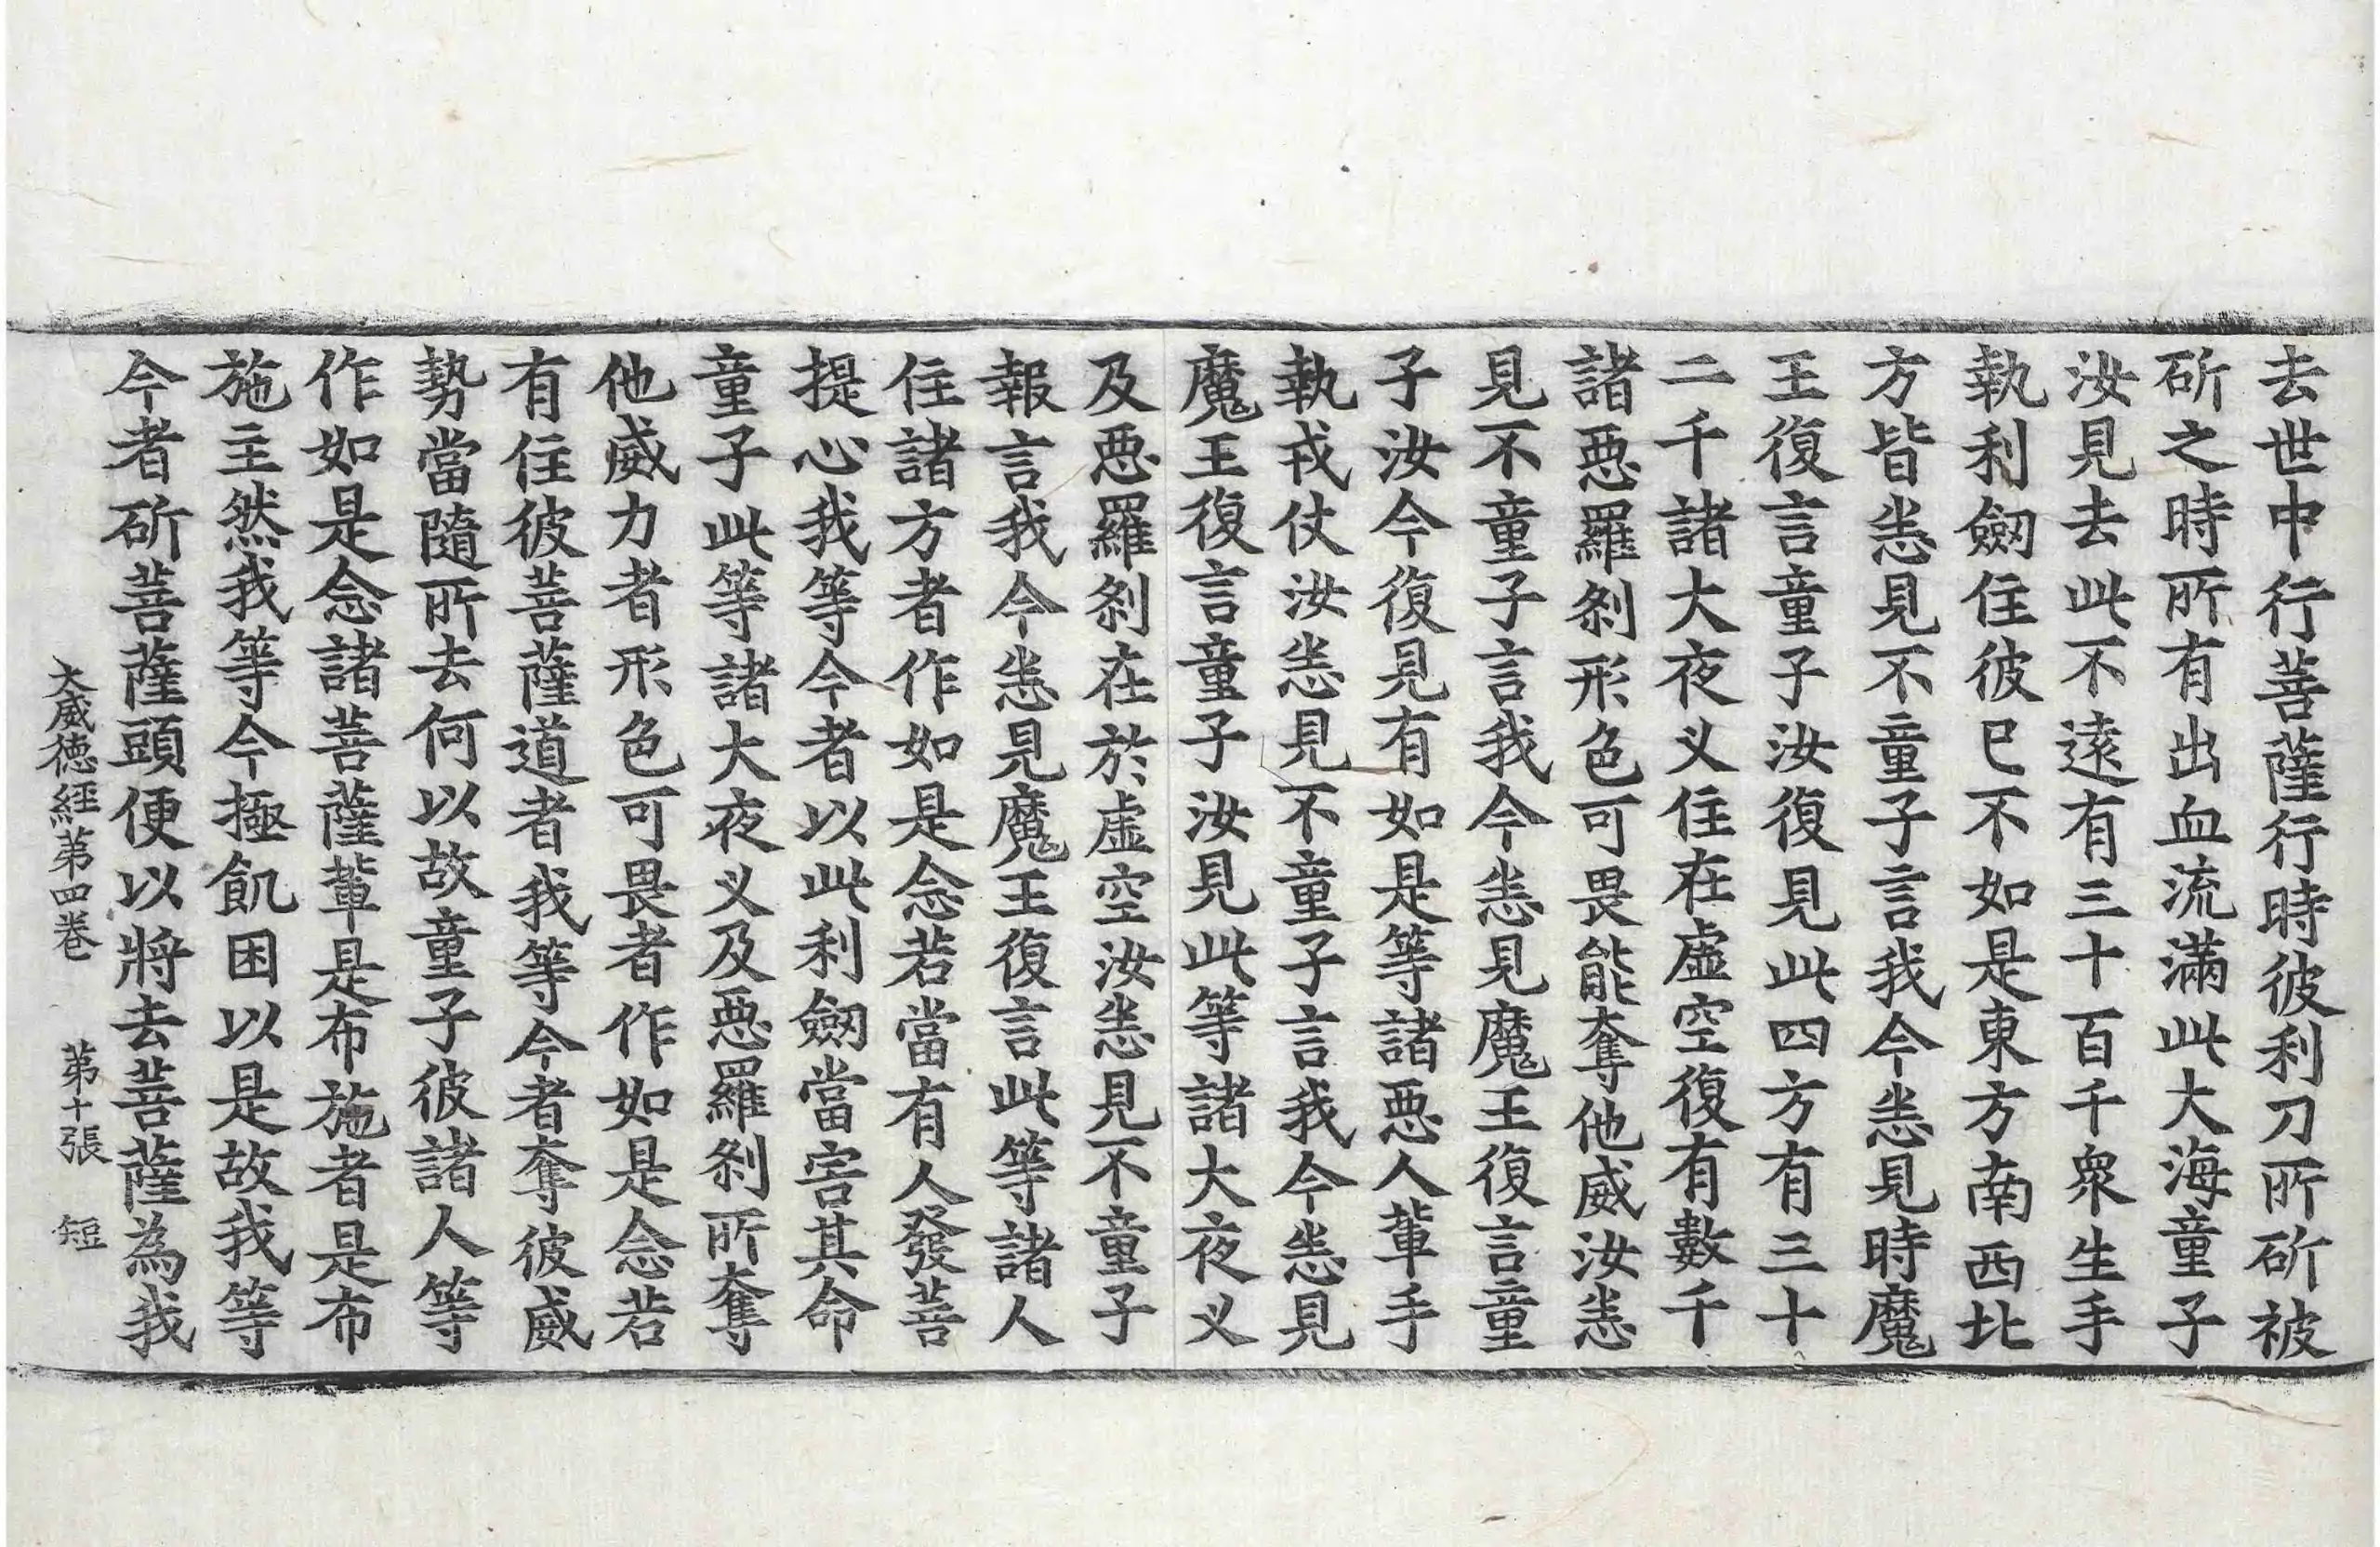 去世中行菩薩行時彼利刀所斫被
斫之時所有出血流滿此大海童子
汝見去此不遠有三十百千衆生手
執利劒住彼已不如是東方南西北
方皆悉見不童子言我今悉見時魔
王復言童子汝復見此四方有三十
二千諸大夜义住在虛空復有數千
諸惡羅刹形色可畏能奪他威汝悉
見不童子言我今悉見魔王復言童
子汝今復見有如是等諸惡人軰手
執戎仗汝悉見不童子言我今悉見
魔王復言童子汝見此等諸大夜义
及惡羅刹在於虛空汝悉見不童子
報言我今悉見魔王復言此等諸人
住諸方者作如是念若當有人發菩
提心我等今者以此利劒當害其命
童子此等諸大夜义及惡羅刹所奪
他威力者形色可畏者作如是念若
有住彼菩薩道者我等今者奪彼威
勢當隨所去何以故童子彼諸人等
作如是念諸菩薩軰是布施者是布
施主然我等今極飢困以是故我等
今者斫菩薩頭便以將去菩薩為我
大威徳經第四卷 第十張 短